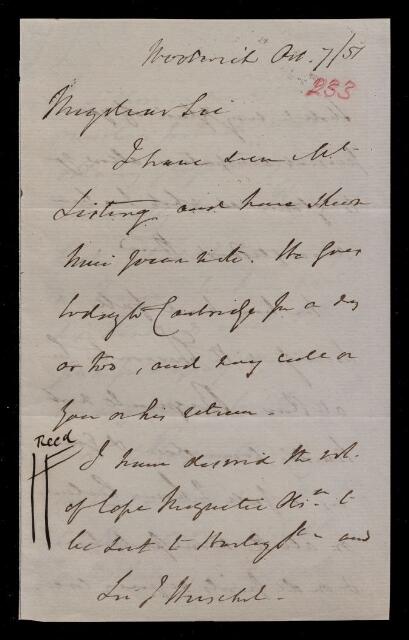 Woolwich Oct. 7/51
233
My dear Sir
I have seen Mr
Listing, and have shewn
him your note. He goes
today to Cambridge for a day
or two, and may call on
you on his return.
Recd
I have desired the vol.
of Cape Magnetic Obsns to
be sent to Harley St. and
Sir J Herschel.